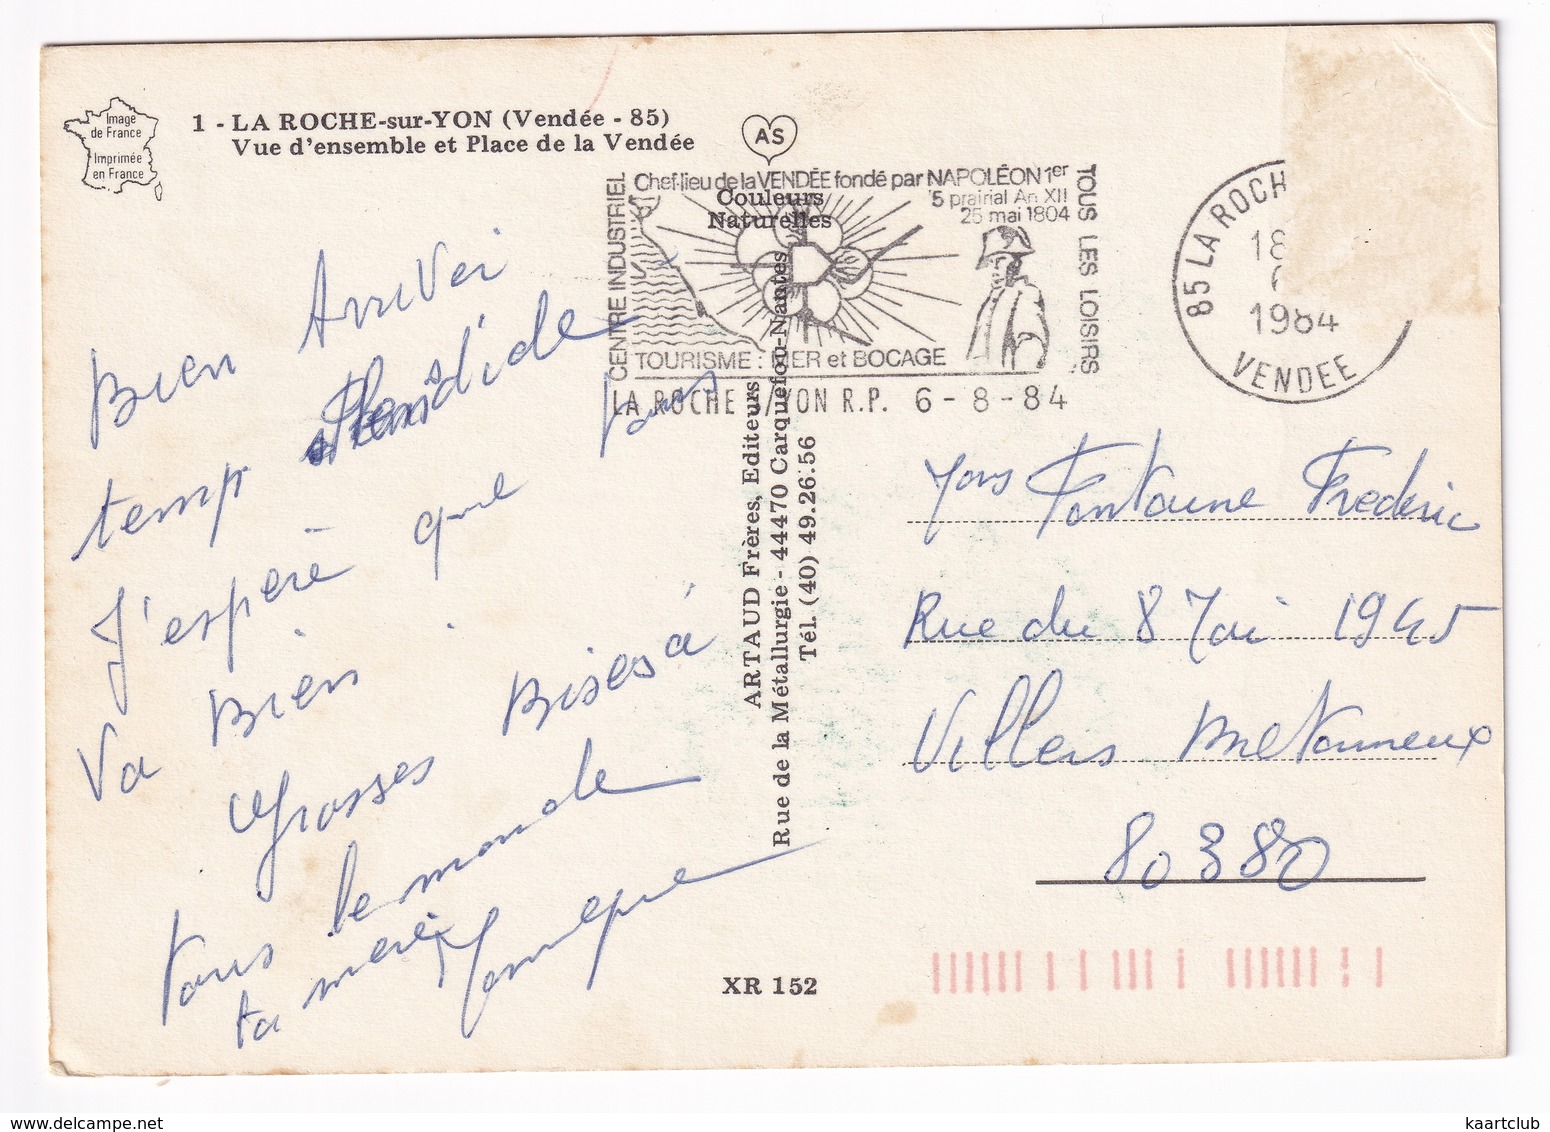 Image
de France
Imprimée
en France
1 - LA ROCHE-sur-YON (Vendée - 85)
Vue d'ensemble et Place de la Vendée
AS
Couleurs
Naturelles
CENTRE INDUSTRIEL
Chef-lieu de la VENDÉE fondé par NAPOLÉON 1er
5 prairial An XII
25 mai 1804
TOUS LES LOISIRS
TOURISME: MER et BOCAGE
LA ROCHE S/YON R.P. 6-8-84
85 LA ROCH
18
1984
VENDEE
Bien Arriver
temp Splendide
J'espère que tous
va Bien.
Grosses Bises à
tous le monde
ta mere Monique
ARTAUD Frères, Editeurs
Rue de la Métallurgie - 44470 Carquefou-Nantes
Tél. (40) 49.26.56
XR 152
Mons Fontaine Frederic
Rue du 8 Mai 1945
Villers Bretonneux
80380
kaartclub